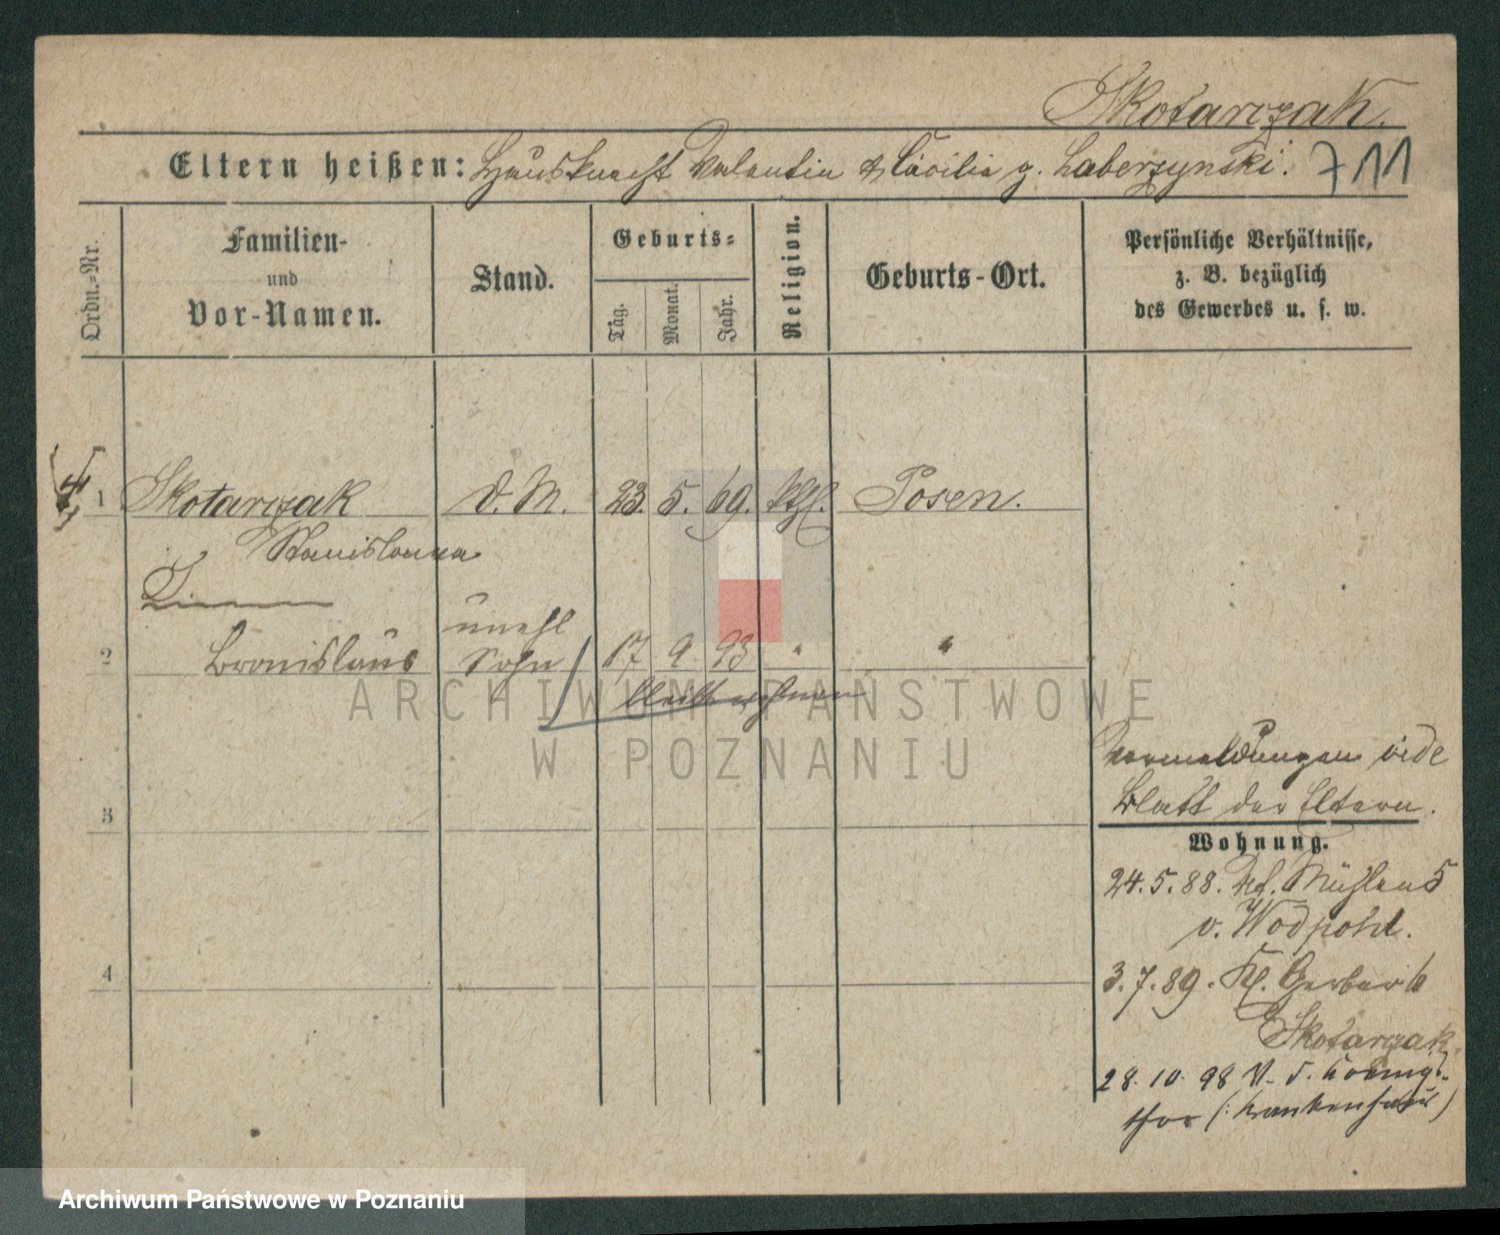 Skotarczak.
Eltern heißen: Hausknecht Valentin & Cäcilia g. Laberzynski. 711
Ordn.-Nr.
Familien-
und
Vor-Namen.
Stand.
Geburts-
Tag.
Monat.
Jahr.
Religion.
Geburts-Ort.
Persönliche Verhältnisse,
z. B. bezüglich
des Gewerbes u. s. w.
1 Skotarczak d. M. 23. 5. 69. kthl. Posen.
Stanislawa
unehl
2 Bronislaus Sohn 17 9 93 " "
3
4
Vormeldungen vide
Blatt der Eltern.
Wohnung.
24. 5. 88. Mühlen 5
v. Wodpohl.
3. 7. 89. Kl. Gerber 6
Skotarczak
28. 10. 98 V. d. Königs-
thor (: Krankenhaus)
ARCHIWUM PAŃSTWOWE
W POZNANIU
Archiwum Państwowe w Poznaniu